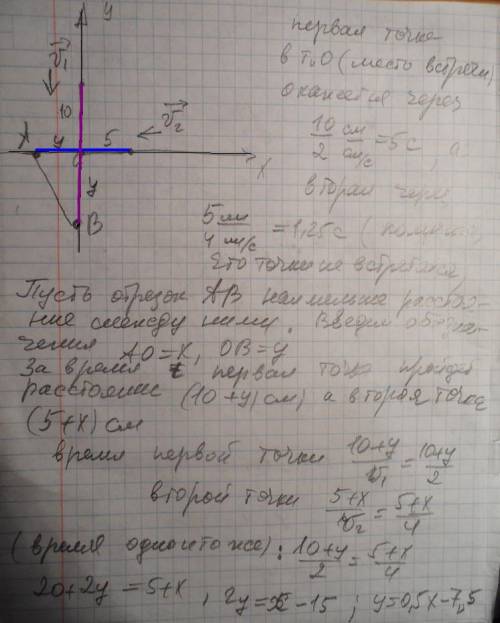 y
v₁
10
первая точка
в т. О (место встречи)
окажется через
10 см / 2 см/с = 5с а
v₂
A y 5
O x
y
B
вторая через
5 см / 4 см/с = 1,25с
Это точки не встретятся
Пусть отрезок AB наименьшее расстоя-
ние между ними. Введем обозна-
чения AO=X, OB=y
За время t первая точка пройдет
расстояние (10+y) см) а вторая точка
(5+x) см
время первой точки (10+y)/v₁ = (10+y)/2
второй точки (5+x)/v₂ = (5+x)/4
(время одно и то же): (10+y)/2 = (5+x)/4
20+2y = 5+x, 2y = x - 15; y=0,5x-7,5